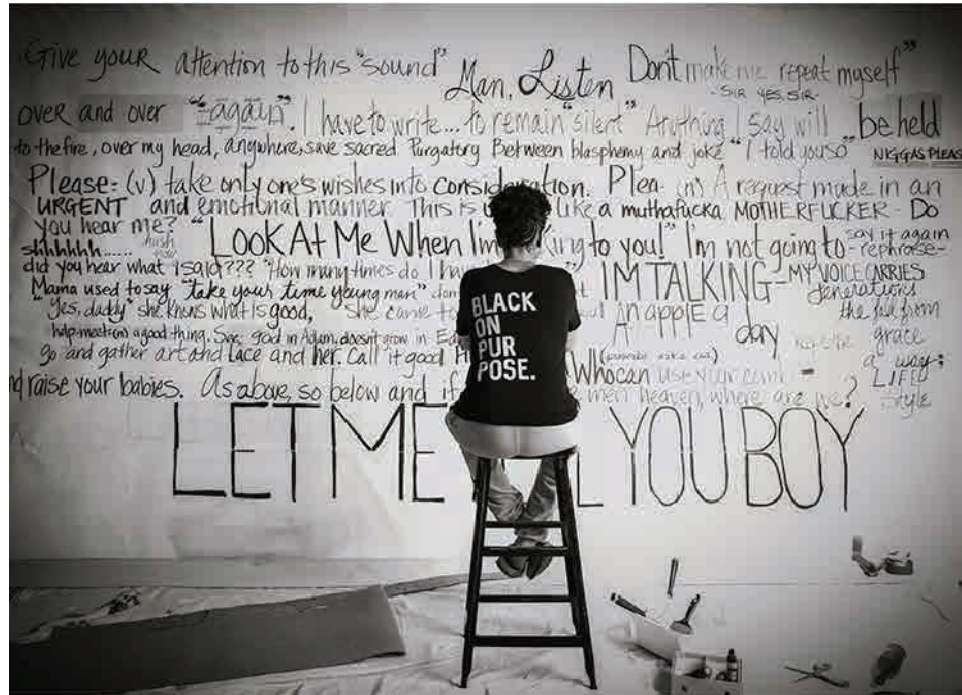 Give your attention to this "sound" Man, Listen Don't make me repeat myself"
-SIR YES, SIR-
over and over "again". I have to write... to remain "silent" Anything I say will be held
to the fire, over my head, anywhere, save sacred Purgatory Between blasphemy and joke "I told you so" NIGGAS PLEAS
Please: (v) take only one's wishes into consideration. Plea- (n) A request made in an
URGENT and emotional manner. This is like a muthafucka MOTHERFUCKER - Do
you hear me? "Look At Me When I'm king to you!" I'm not going to -say it again
shhhhhh...... hush now -rephrase-
did you hear what I said??? "How many times do I ha " IM TALKING - MY VOICE CARRIES
generations
Mama used to say "take your time young man" don t
"Yes, daddy" she knows what is good, she came to out An applE a day the fall from
grace
help-meet(n) a good thing. See, god in Adam, doesn't grow in Ed
go and gather art and lace and her. Call it good H Who can use your comb - a way:
LIFE
style
nd raise your babies. As above, so below and if men heaven, where are we?
LET ME L YOU BOY
BLACK
ON
PUR
POSE.